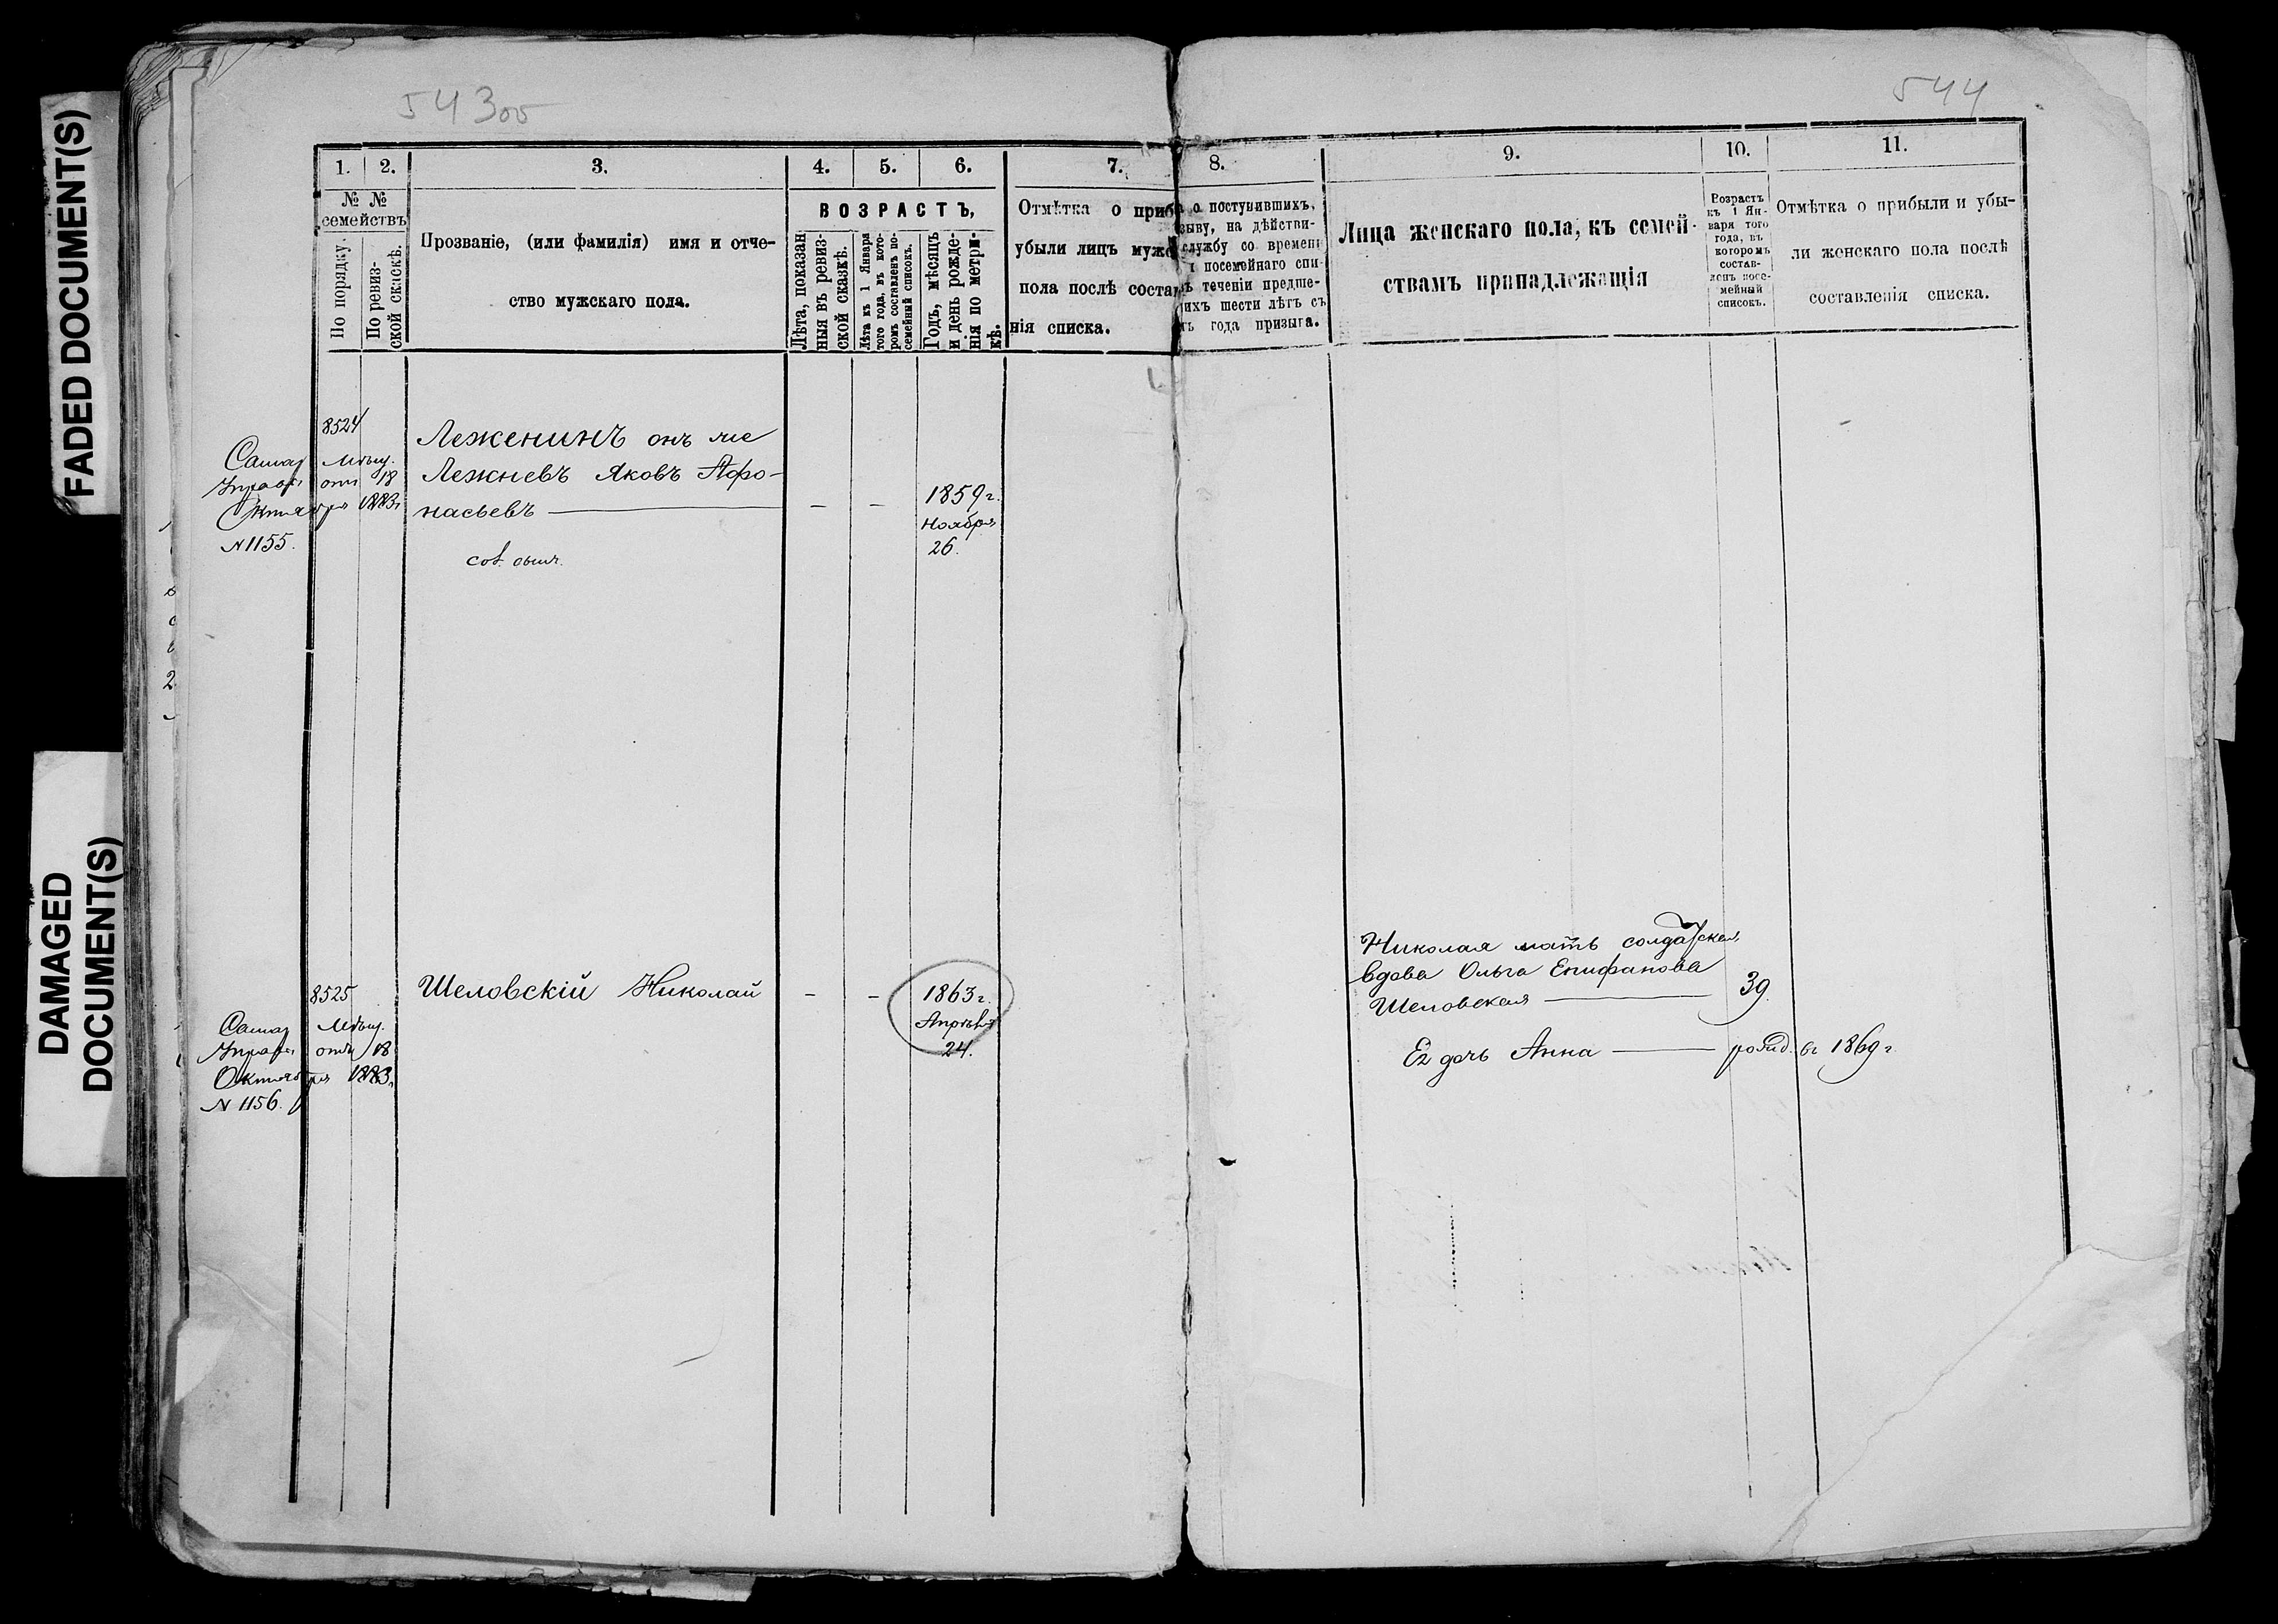 FADED DOCUMENT(S)
DAMAGED
DOCUMENT(S)
543об
544
1. 2. 3. 4. 5. 6. 7. 8. 9. 10. 11.
№ №
семействъ
По порядку.
По ревиз-
ской сказкѣ.
Прозваніе, (или фамилія) имя и отче-
ство мужскаго пола.
ВОЗРАСТЪ,
Лѣта, показан
ныя въ ревиз-
ской сказкѣ.
Лѣта къ 1 Января
того года, въ кото-
ромъ составленъ по-
семейный списокъ.
Годъ, мѣсяцъ
и день рожде-
нія по метри-
кѣ.
Отмѣтка о приб
убыли лицъ муже
пола послѣ состав
нія списка.
о поступившихъ,
зыву, на дѣйстви-
службу со времени
посемейнаго спи-
ъ теченіи предше-
ихъ шести лѣтъ съ
года призыва.
Лица женскаго пола, къ семей-
ствамъ принадлежащія
Возрастъ
къ 1 Ян-
варя того
года, въ
которомъ
состав-
ленъ посе-
мейный
списокъ.
Отмѣтка о прибыли и убы-
ли женскаго пола послѣ
составленія списка.
8524
Самар Мѣщ.
Управ. отъ 18
Октября 1883г
N 1155.
Леженинъ онъ же
Лежневъ Яковъ Афо-
насьевъ — – –
1859 г.
Ноября
26.
8525
Самар Мѣщ.
Управ. отъ 18
Октября 1883г
N 1156.
Шеловскій Николай – –
1863 г.
Апрѣля
24.
Николая мать солдатская
вдова Ольга Епифанова
Шеловская — 39.
Ея дочь Анна — рожд. въ 1869 г.